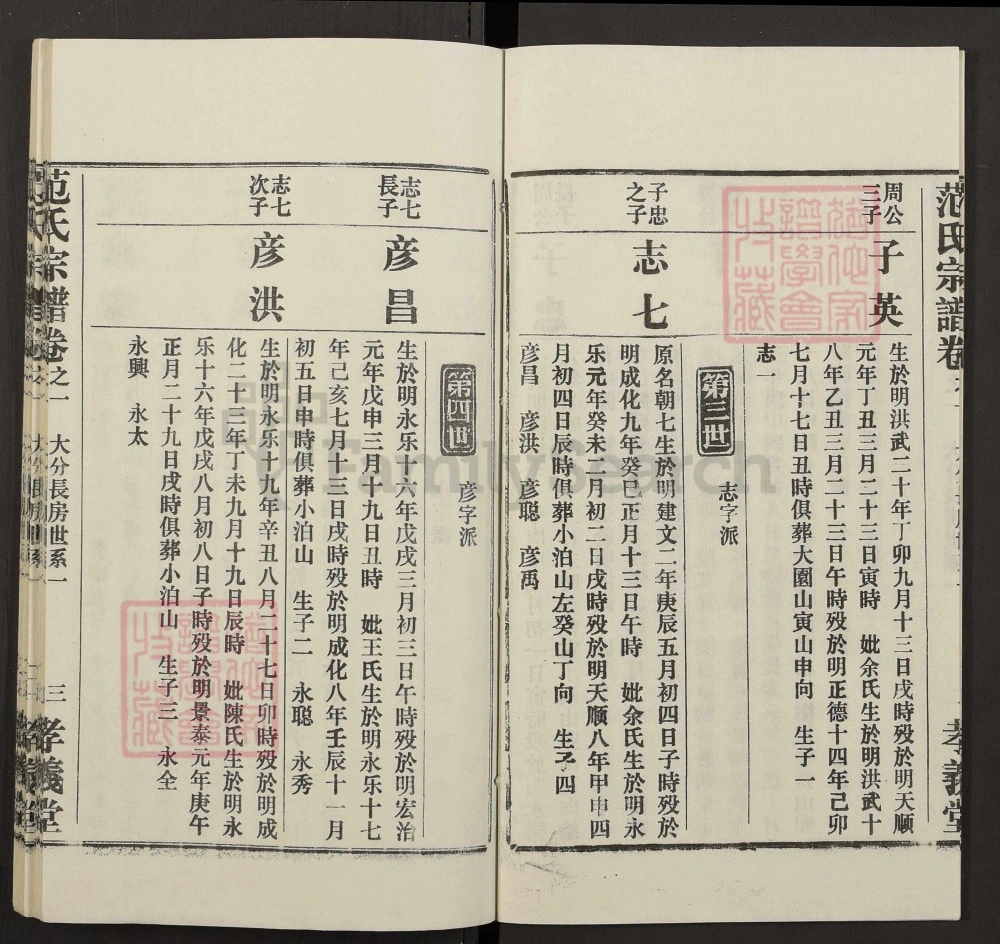 范氏宗譜卷
周公
三子
子英
生於明洪武二十年丁卯九月十三日戌時殁於明天顺
元年丁丑三月二十三日寅時 妣余氏生於明洪武十
八年乙丑三月二十三日午時殁於明正德十四年己卯
七月十七日丑時俱葬大園山寅山申向 生子一
志一
第三世
志字派
子忠
之子
志七
原名朝七生於明建文二年庚辰五月初四日子時殁於
明成化九年癸巳正月十三日午時 妣余氏生於明永
乐元年癸未十月初二日戌時殁於明天顺八年甲申四
月初四日辰時俱葬小泊山左癸山丁向 生子四
彦昌 彦洪 彦聪 彦禹
孝義堂
第四世
彦字派
志七
長子
彦昌
生於明永乐十六年戊戌三月初三日午時殁於明宏治
元年戊申三月十九日丑時 妣王氏生於明永乐十七
年己亥七月十三日戌時殁於明成化八年壬辰十一月
初五日申時俱葬小泊山 生子二 永聪 永秀
志七
次子
彦洪
生於明永乐十九年辛丑八月二十七日卯時殁於明成
化二十三年丁未九月十九日辰時 妣陳氏生於明永
乐十六年戊戌八月初八日子時殁於明景泰元年庚午
正月二十九日戌時俱葬小泊山 生子三 永全
永興 永太
范氏宗譜卷之一 大分長房世系一 三 孝義堂
FamilySearch